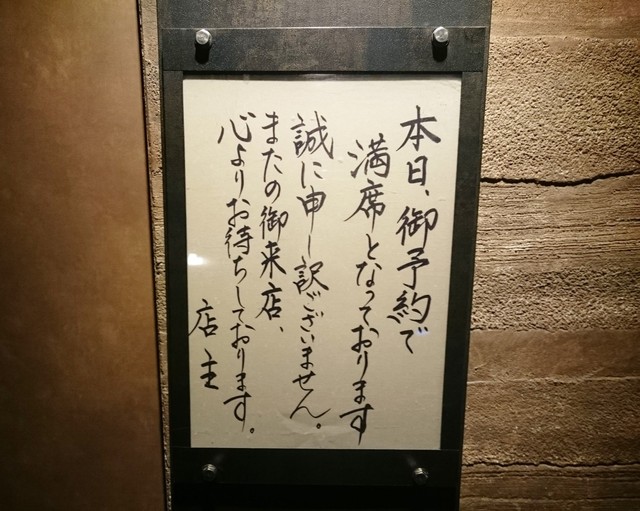 本日、御予約で
満席となっております
誠に申し訳ございません。
またの御来店、
心よりお待ちしております。
店主